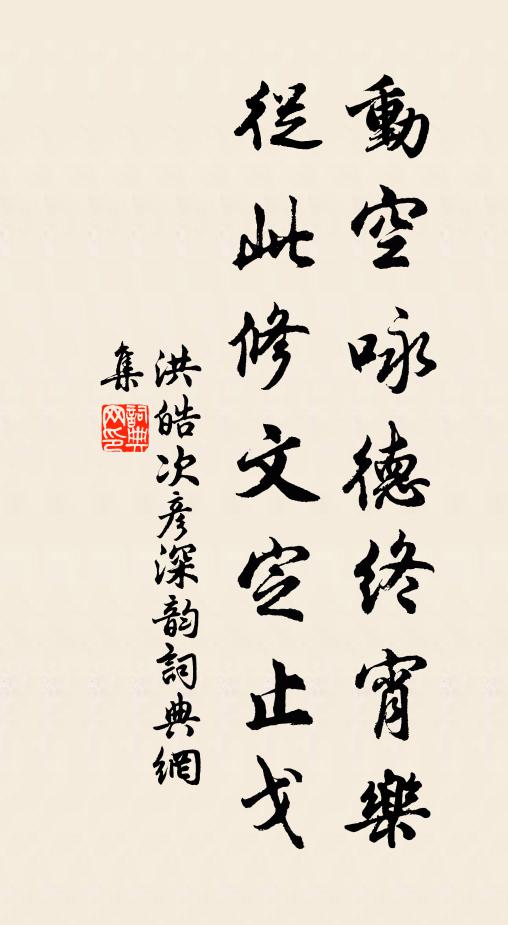 動空咏德終宵樂
從此修文定止戈
洪皓次彥深韵詞典網
集
詞典网印